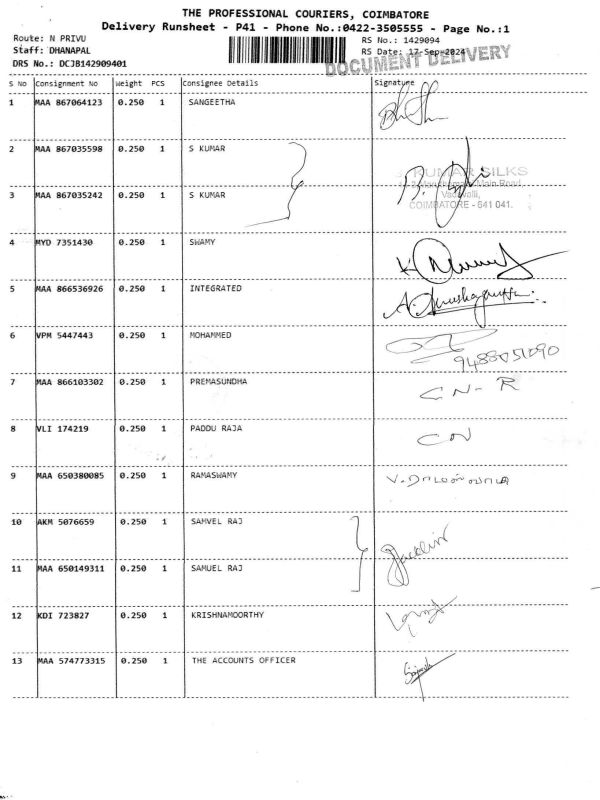 THE PROFESSIONAL COURIERS, COIMBATORE
Delivery Runsheet - P41 - Phone No.:0422-3505555 - Page No.:1
Route: N PRIVU
RS No.: 1429094
Staff: DHANAPAL
RS Date: 17-Sep-2024
DRS No.: DCJB142909401
DOCUMENT DELIVERY
S No Consignment No Weight PCS Consignee Details Signature
1 MAA 867064123 0.250 1 SANGEETHA
2 MAA 867035598 0.250 1 S KUMAR
KUMAR SILKS
Main Road,
COIMBATORE - 641 041.
3 MAA 867035242 0.250 1 S KUMAR
4 MYD 7351430 0.250 1 SWAMY
5 MAA 866536926 0.250 1 INTEGRATED
6 VPM 5447443 0.250 1 MOHAMMED
9488051090
7 MAA 866103302 0.250 1 PREMASUNDHA CN-R
8 VLI 174219 0.250 1 PADDU RAJA CN
9 MAA 650380085 0.250 1 RAMASWAMY
10 AKM 5076659 0.250 1 SAMVEL RAJ
Jacklin
11 MAA 650149311 0.250 1 SAMUEL RAJ
12 KDI 723827 0.250 1 KRISHNAMOORTHY
13 MAA 574773315 0.250 1 THE ACCOUNTS OFFICER